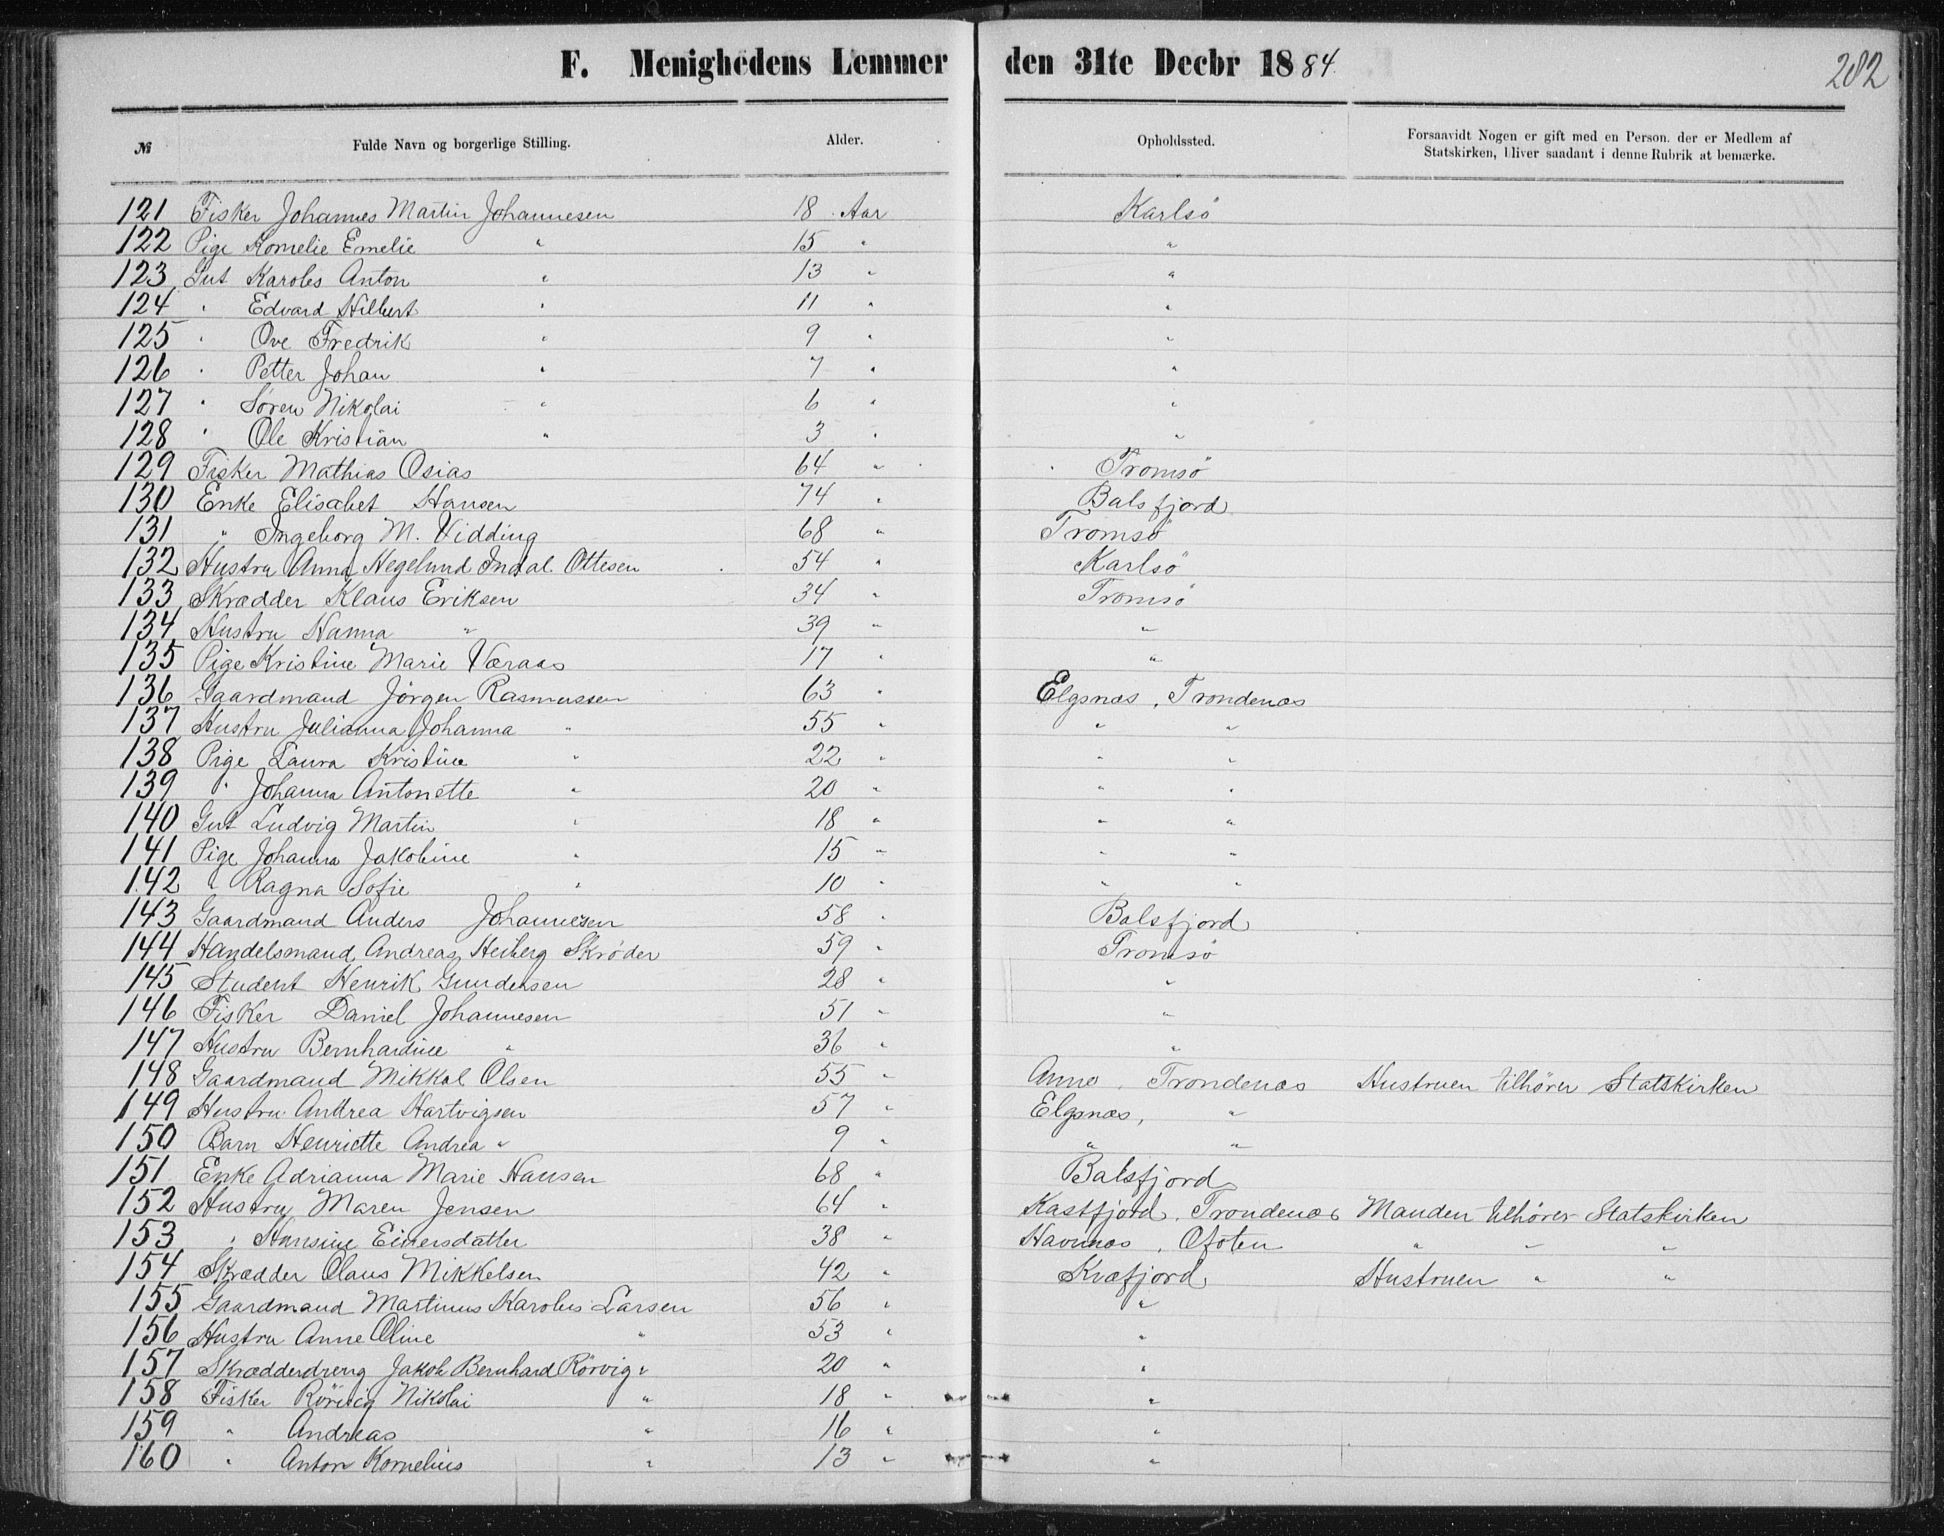 F. Menighedens Lemmer den 31te Decbr 1884. 282
№ Fulde Navn og borgerlige Stilling. Alder. Opholdssted. Forsaavidt Nogen er gift med en Person, der er Medlem af
Statskirken, bliver saadant i denne Rubrik at bemærke.
121 Fisker Johannes Martin Johannesen 18 Aar Karlsö
122 Pige Kornelie Emelie " 15 " "
123 Gut Karoles Anton " 13 " "
124 " Edvard Hilbert " 11 " "
125 " Ove Fredrik " 9 " "
126 " Petter Johan " 7 " "
127 " Søren Nikolai " 6 " "
128 " Ole Kristian " 3 " "
129 Fisker Mathias Osias 64 " Tromsö
130 Enke Elisabet Hansen 74 " Balsfjord
131 " Ingeborg M. Vidding 68 " Tromsö
132 Hustru Anna Hegelund Indal Ottesen 54 " Karlsö
133 Skrædder Klaus Eriksen 34 " Tromsö
134 Hustru Hanna " 39 " "
135 Pige Kristine Marie Væraas 17 " "
136 Gaardmand Jörgen Rasmussen 63 " Elgsnæs, Trondenæs
137 Hustru Julianna Johanna " 55 " " "
138 Pige Laura Kristine " 22 " " "
139 " Johanna Antonette " 20 " " "
140 Gut Ludvig Martin " 18 " " "
141 Pige Johanna Jakobine " 15 " " "
142 " Ragna Sofie " 10 " " "
143 Gaardmand Anders Johannesen 58 " Balsfjord
144 Handelsmand Andreas Heiberg Skrøder 59 " Tromsö
145 Student Henrik Gundersen 28 " "
146 Fisker Daniel Johannesen 51 " "
147 Hustru Bernhardine " 36 " "
148 Gaardmand Mikkal Olsen 55 " Trondenæs Hustruen tilhörer Statskirken
149 Hustru Andrea Hartvigsen 57 " Elgsnæs, "
150 Barn Henriette Andrea " 9 " " "
151 Enke Adrianna Marie Hansen 68 " Balsfjord
152 Hustru Maren Jensen 64 " Kastfjord, Trondenæs Manden tilhörer Statskirken
153 " Hansine Einersdatter 38 " Havnnæs, Ofoten " " "
154 Skrædder Olaus Mikkelsen 42 " Kvæfjord Hustruen " "
155 Gaardmand Martinus Karolus Larsen 56 " "
156 Hustru Anne Oline " 53 " "
157 Skrædderdreng Jakob Bernhard Rörvig " 20 " "
158 Fisker Rörvig Nikolai " 18 " "
159 " Andreas " 16 " "
160 " Anton Kornelius " 13 " "